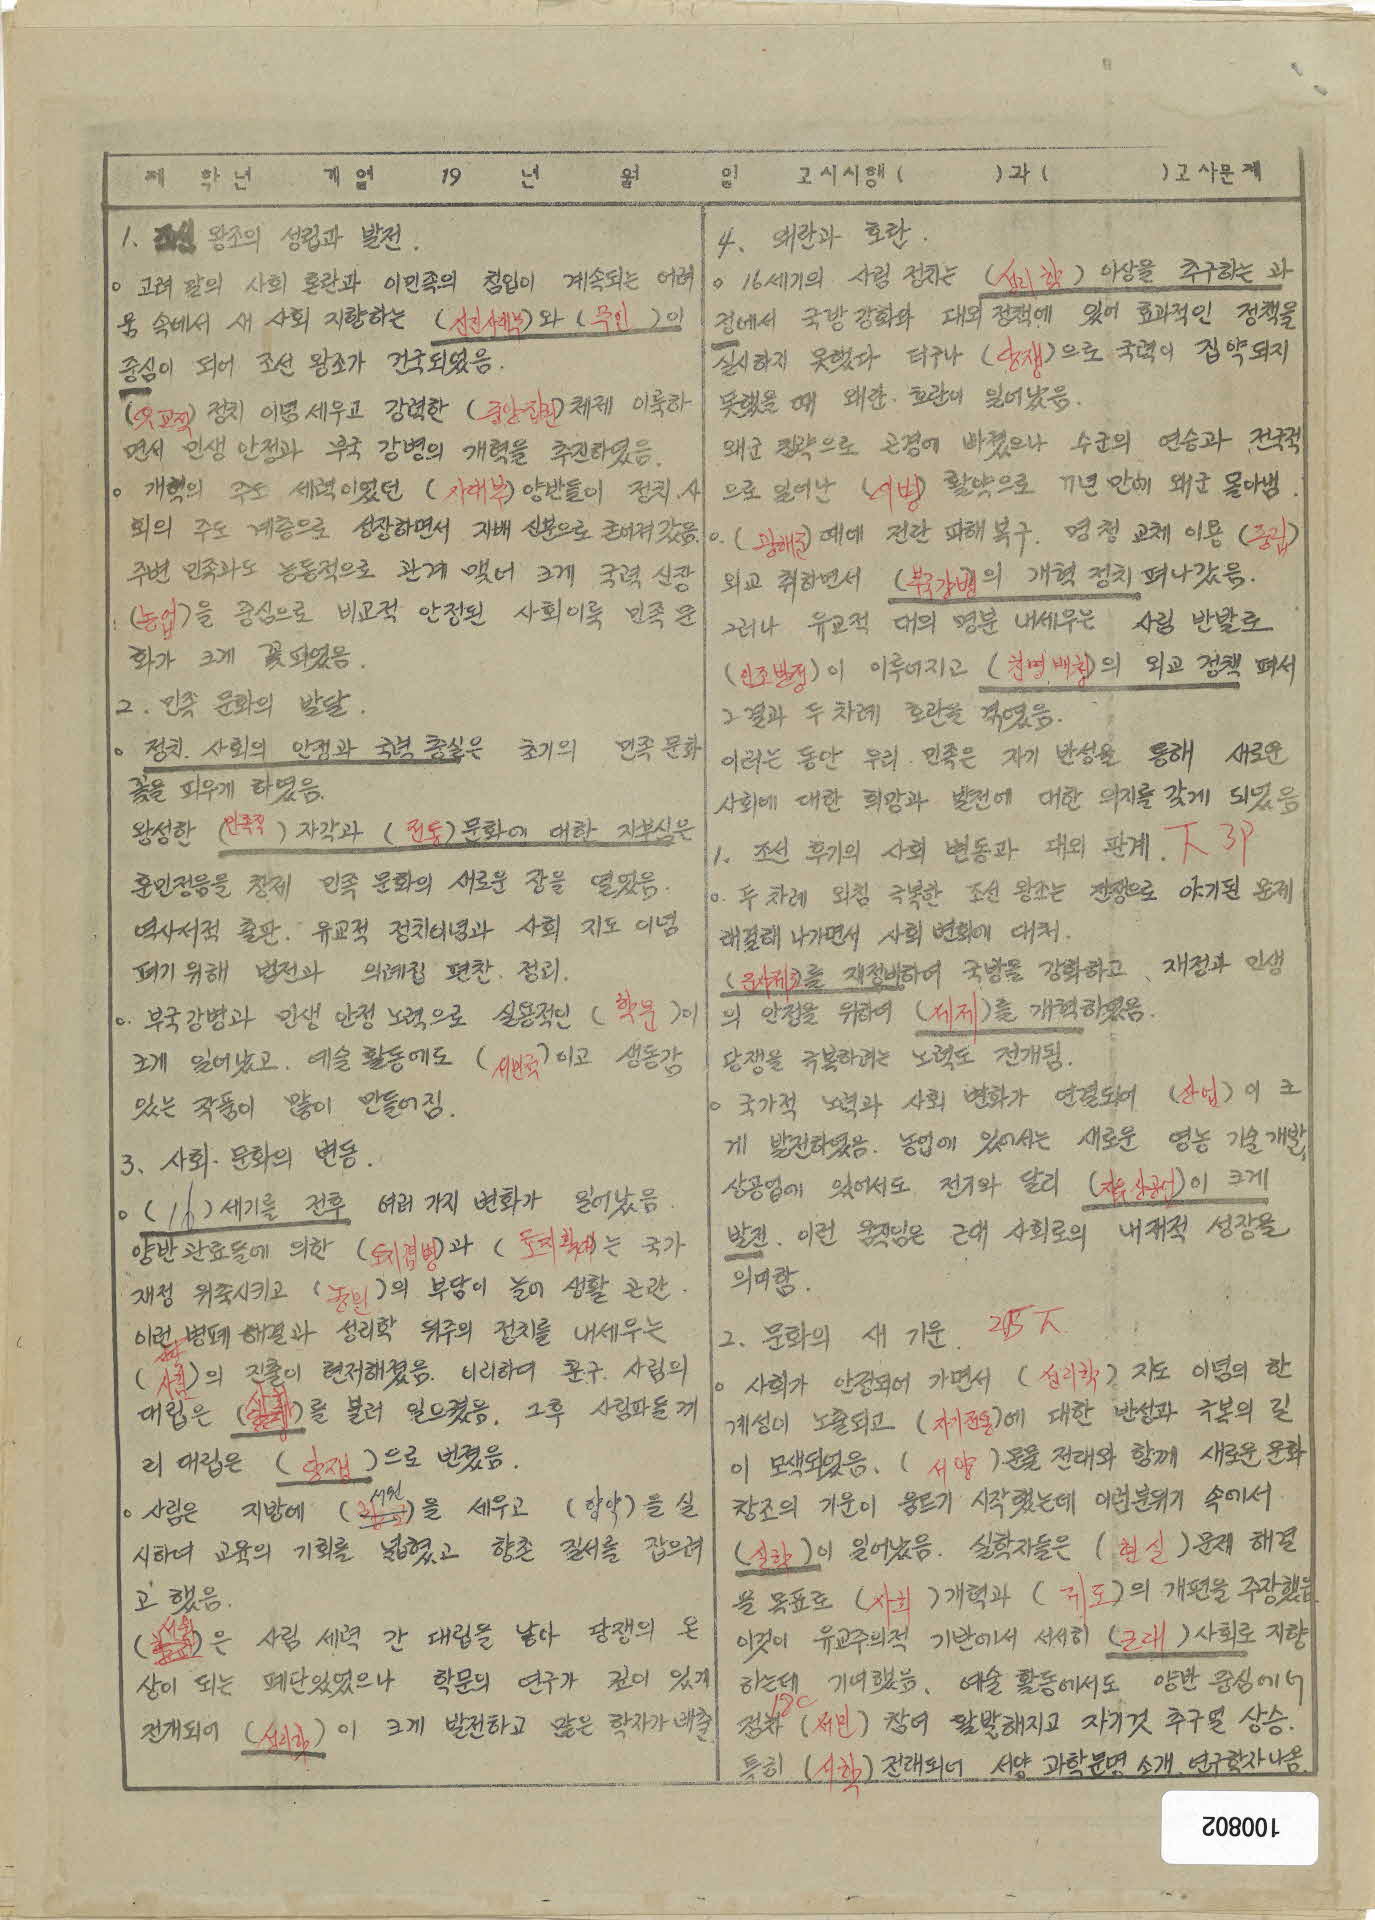 제 학년 개업 19 년 월 일 고시시행( )과( )고사문제
1. 조선 왕조의 성립과 발전.
o 고려 말의 사회 혼란과 이민족의 침입이 계속되는 어려
움 속에서 새 사회 지향하는 (신진사대부)와 (무인)이
중심이 되어 조선 왕조가 건국되었음.
(유교적) 정치 이념 세우고 강력한 (중앙집권)체제 이룩하
면서 민생 안정과 부국 강병의 개혁을 추진하였음.
o 개혁의 주도 세력이었던 (사대부)양반들이 정치.사
회의 주도 계층으로 성장하면서 지배 신분으로 굳어져 갔음.
주변 민족과도 능동적으로 관계 맺어 크게 국력 신장
(농업)을 중심으로 비교적 안정된 사회이룩 민족 문
화가 크게 꽃피었음.
2. 민족 문화의 발달.
o 정치. 사회의 안정과 국력 충실은 초기의 민족 문화
꽃을 피우게 하였음.
왕성한 (민족적) 자각과 (전통)문화에 대한 자부심은
훈민정음을 창제 민족 문화의 새로운 장을 열었음.
역사서적 출판. 유교적 정치이념과 사회 지도 이념
펴기 위해 법전과 의례집 편찬. 정리.
o. 부국강병과 민생 안정 노력으로 실용적인 (학문)이
크게 일어났고. 예술 활동에도 (서민족)이고 생동감
있는 작품이 많이 만들어짐.
3. 사회. 문화의 변동.
o (16)세기를 전후 여러 가지 변화가 일어났음.
양반 관료들에 의한 (토지겸병)과 (토지확대)는 국가
재정 위축시키고 (농민)의 부담이 늘어 생활 곤란.
이런 병폐 해결과 성리학 위주의 정치를 내세우는
(사림)의 진출이 현저해졌음. 이리하여 훈구. 사림의
대립은 (사화)를 불러 일으켰음. 그후 사림파들끼
리 대립은 (당쟁)으로 번졌음.
o 사림은 지방에 (서원)을 세우고 (향약)을 실
시하여 교육의 기회를 넓혔고 향촌 질서를 잡으려
고 했음.
(서원)은 사림 세력 간 대립을 낳아 당쟁의 온
상이 되는 폐단있었으나 학문의 연구가 깊이 있게
전개되어 (성리학)이 크게 발전하고 많은 학자가 배출
4. 왜란과 호란.
o 16세기의 사림 정치는 (성리학) 이상을 추구하는 과
정에서 국방 강화와 대외 정책에 있어 효과적인 정책을
실시하지 못했다 더구나 (당쟁)으로 국력이 집약되지
못했을 때 왜란. 호란이 일어났음.
왜군 침략으로 곤경에 빠졌으나 수군의 연승과 전국적
으로 일어난 (의병) 활약으로 7년 만에 왜군 몰아냄.
o. (광해군)때에 전란 피해 복구. 명청 교체 이용 (중립)
외교 취하면서 (부국강병)의 개혁 정치 펴나갔음.
그러나 유교적 대의 명분 내세우는 사림 반발로
(인조반정)이 이루어지고 (친명.배청)의 외교 정책 펴서
그결과 두 차례 호란을 겪었음.
이러는 동안 우리. 민족은 자기 반성을 통해 새로운
사회에 대한 희망과 발전에 대한 의지를 갖게 되었음
1. 조선 후기의 사회 변동과 대외 관계. 下 3P
o. 두 차례 외침 극복한 조선 왕조는 전쟁으로 야기된 문제
해결해 나가면서 사회 변화에 대처.
(군사제도)를 재정비하여 국방을 강화하고, 재정과 민생
의 안정을 위하여 (세제)를 개혁하였음.
당쟁을 극복하려는 노력도 전개됨.
o 국가적 노력과 사회 변화가 연결되어 (산업)이 크
게 발전하였음. 농업에 있어서는 새로운 영농 기술 개발,
상공업에 있어서도 전기와 달리 (자유상공업)이 크게
발전. 이런 움직임은 근대 사회로의 내재적 성장을
의미함.
2. 문화의 새 기운. 下
o 사회가 안정되어 가면서 (성리학) 지도 이념의 한
계성이 노출되고 (자기전통)에 대한 반성과 극복의 길
이 모색되었음. (서양)문물 전래와 함께 새로운 문화
창조의 기운이 움트기 시작했는데 이런분위기 속에서
(실학)이 일어났음. 실학자들은 (현실)문제 해결
을 목표로 (사회)개혁과 (제도)의 개편을 주장했음
이것이 유교주의적 기반에서 서서히 (근대)사회로 지향
하는데 기여했음. 예술 활동에서도 양반 중심에서
18C
점차 (서민) 참여 활발해지고 자기것 추구열 상승.
특히 (서학) 전래되어 서양 과학문명 소개. 연구학자나옴.
100802